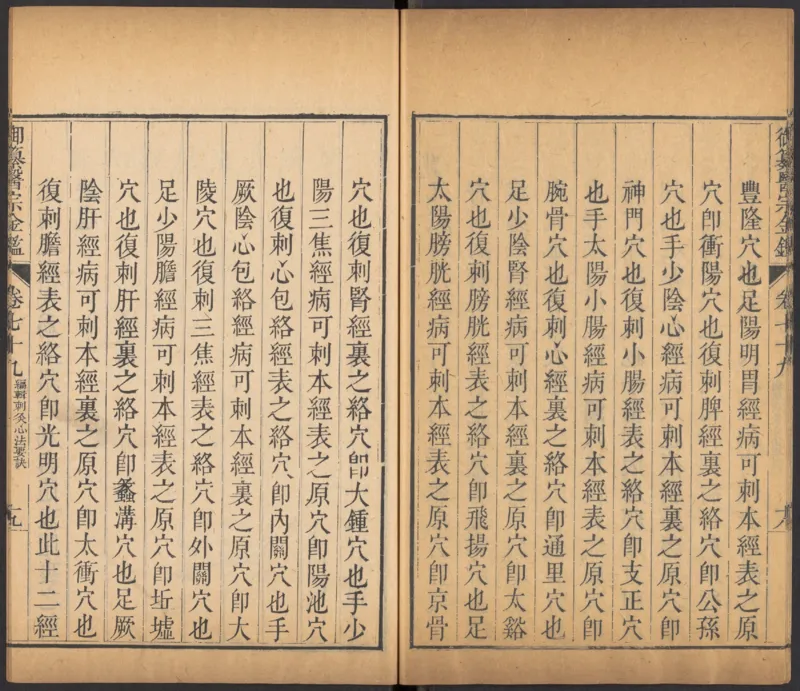 御纂醫宗金鑑
卷七十九
豐隆穴也足陽明胃經病可刺本經表之原
穴卽衝陽穴也復刺脾經裏之絡穴卽公孫
穴也手少陰心經病可刺本經裏之原穴卽
神門穴也復刺小腸經表之絡穴卽支正穴
也手太陽小腸經病可刺本經表之原穴卽
腕骨穴也復刺心經裏之絡穴卽通里穴也
足少陰腎經病可刺本經裏之原穴卽太谿
穴也復刺膀胱經表之絡穴卽飛揚穴也足
太陽膀胱經病可刺本經表之原穴卽京骨
穴也復刺腎經裏之絡穴卽大鍾穴也手少
陽三焦經病可刺本經表之原穴卽陽池穴
也復刺心包絡經裏之絡穴卽內關穴也手
厥陰心包絡經病可刺本經裏之原穴卽大
陵穴也復刺三焦經表之絡穴卽外關穴也
足少陽膽經病可刺本經表之原穴卽坵墟
穴也復刺肝經裏之絡穴卽蠡溝穴也足厥
陰肝經病可刺本經裏之原穴卽太衝穴也
復刺膽經表之絡穴卽光明穴也此十二經
御纂醫宗金鑑
卷七十九
編輯刺灸心法要訣
十九